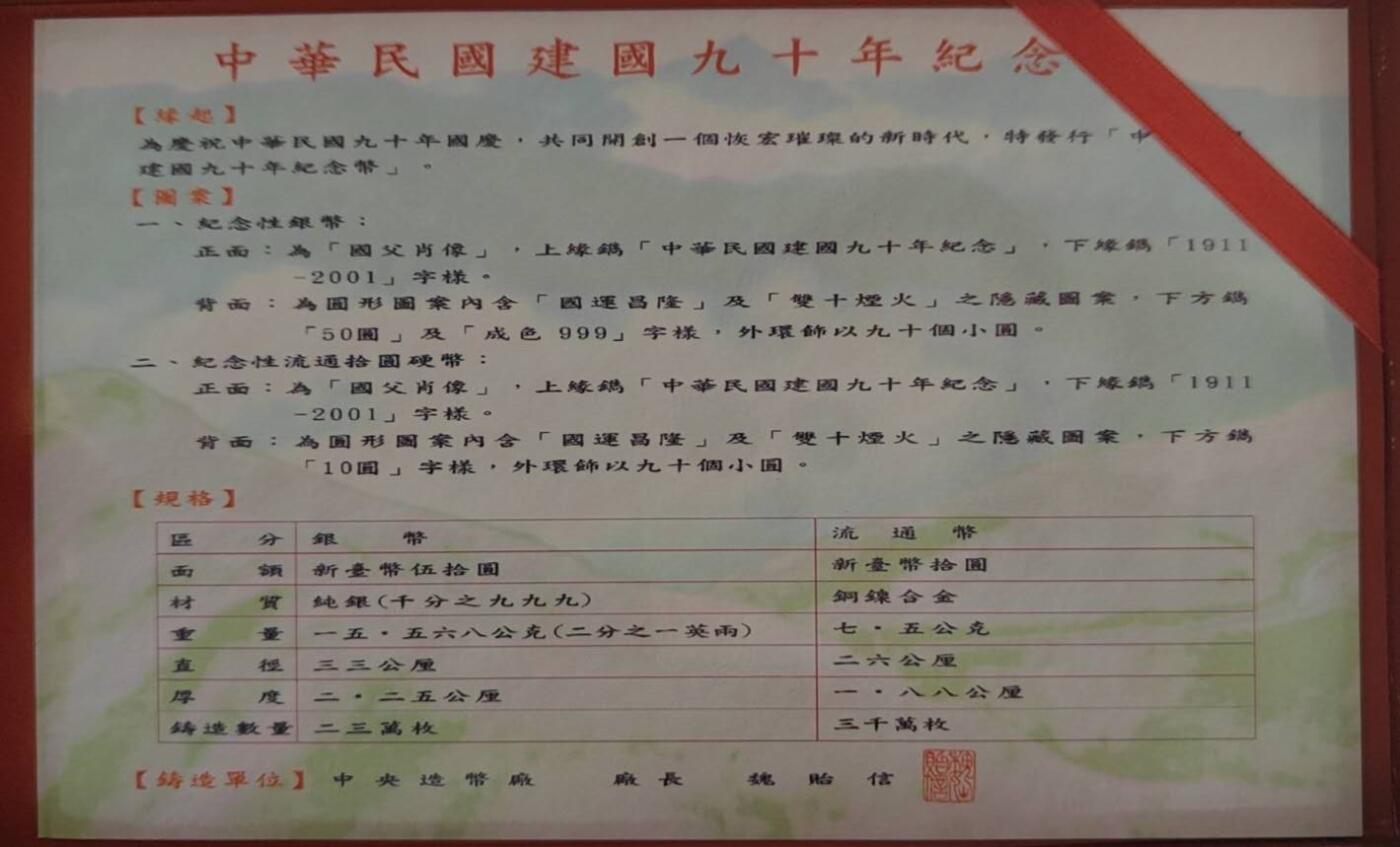 中華民國建國九十年紀念
【緣起】
為慶祝中華民國九十年國慶，共同開創一個恢宏璀璨的新時代，特發行「中
建國九十年紀念幣」。
【圖案】
一、紀念性銀幣：
正面：為「國父肖像」，上緣鐫「中華民國建國九十年紀念」，下緣鐫「1911
-2001」字樣。
背面：為圓形圖案內含「國運昌隆」及「雙十煙火」之隱藏圖案，下方鐫
「50圓」及「成色 999」字樣，外環飾以九十個小圓。
二、紀念性流通拾圓硬幣：
正面：為「國父肖像」，上緣鐫「中華民國建國九十年紀念」，下緣鐫「1911
-2001」字樣。
背面：為圓形圖案內含「國運昌隆」及「雙十煙火」之隱藏圖案，下方鐫
「10圓」字樣，外環飾以九十個小圓。
【規格】
區分 銀幣 流通幣
面額 新臺幣伍拾圓 新臺幣拾圓
材質 純銀(千分之九九九) 銅鎳合金
重量 一五・五六八公克(二分之一英兩) 七・五公克
直徑 三三公厘 二六公厘
厚度 二・二五公厘 一・八八公厘
鑄造數量 二三萬枚 三千萬枚
【鑄造單位】中央造幣廠 廠長 魏貽信